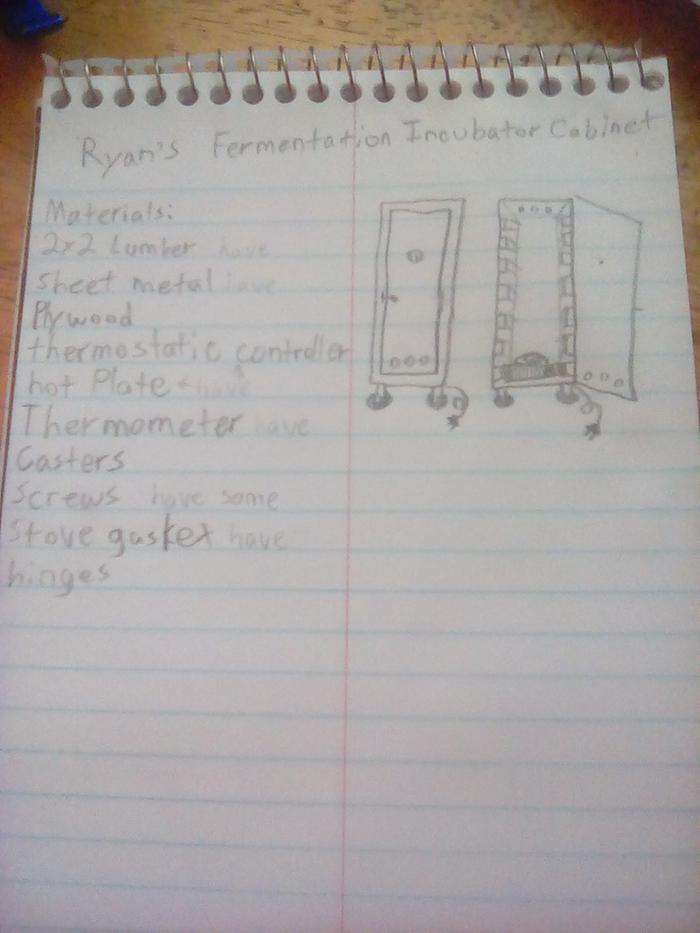 Ryan's Fermentation Incubator Cabinet
Materials:
2x2 Lumber have
Sheet metal have
Plywood
thermostatic controller
hot Plate have
Thermometer have
Casters
Screws have some
Stove gasket have
hinges